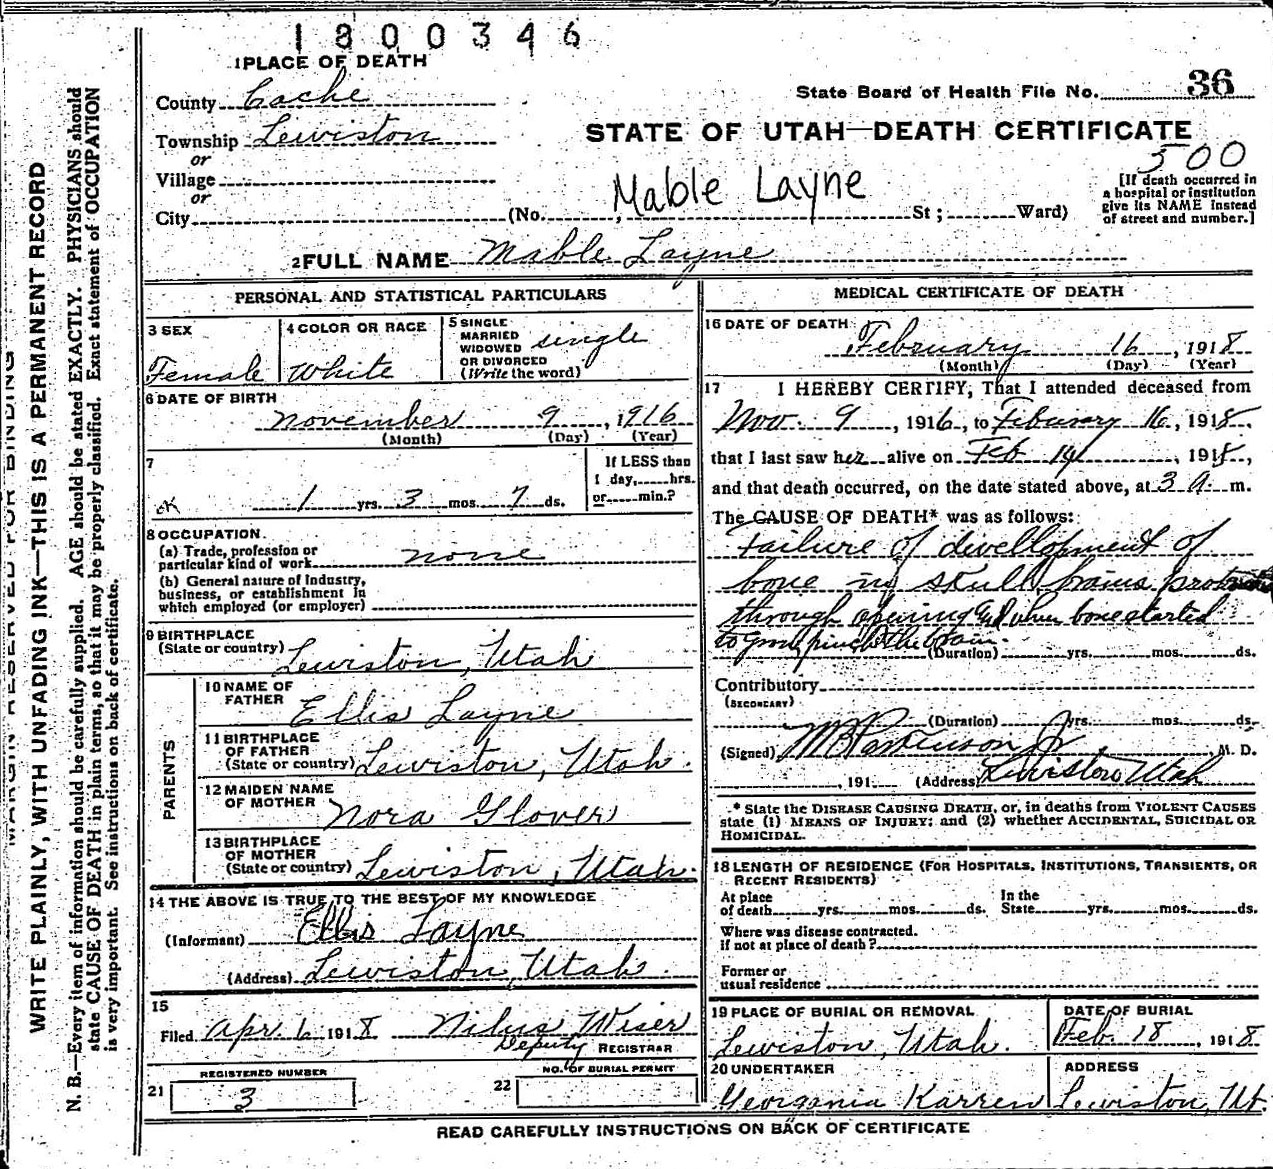 1800346
1 PLACE OF DEATH
County Cache
Township Lewiston
or
Village
or
City (No. , St ; Ward)
State Board of Health File No. 36
STATE OF UTAH—DEATH CERTIFICATE
500
Mable Layne
[If death occurred in
a hospital or institution
give its NAME instead
of street and number.]
2 FULL NAME Mable Layne
PERSONAL AND STATISTICAL PARTICULARS
3 SEX
Female
4 COLOR OR RACE
White
5 SINGLE
MARRIED
WIDOWED
OR DIVORCED
(Write the word)
single
6 DATE OF BIRTH
November 9, 1916
(Month) (Day) (Year)
7
1 yrs. 3 mos. 7 ds.
If LESS than
1 day, hrs.
or min.?
8 OCCUPATION.
(a) Trade, profession or
particular kind of work none
(b) General nature of Industry,
business, or establishment in
which employed (or employer)
9 BIRTHPLACE
(State or country) Lewiston, Utah
PARENTS
10 NAME OF
FATHER Ellis Layne
11 BIRTHPLACE
OF FATHER
(State or country) Lewiston, Utah.
12 MAIDEN NAME
OF MOTHER Nora Glover
13 BIRTHPLACE
OF MOTHER
(State or country) Lewiston, Utah.
14 THE ABOVE IS TRUE TO THE BEST OF MY KNOWLEDGE
(Informant) Ellis Layne
(Address) Lewiston, Utah.
15
Filed Apr. 6 1918 Nilus Wiser
Deputy REGISTRAR
REGISTERED NUMBER
21 3
NO. OF BURIAL PERMIT
22
MEDICAL CERTIFICATE OF DEATH
16 DATE OF DEATH
February 16, 1918
(Month) (Day) (Year)
17 I HEREBY CERTIFY, That I attended deceased from
Nov. 9, 1916, to February 16, 1918,
that I last saw her alive on Feb 14, 1918,
and that death occurred, on the date stated above, at 3 A. m.
The CAUSE OF DEATH* was as follows:
Failure of devellopment of
bone in skull brains
through opening and when bone started
to the brain.
(Duration) yrs. mos. ds.
Contributory
(SECONDARY)
(Duration) yrs. mos. ds.
(Signed) W B Parkinson Jr, M. D.
, 191 (Address) Lewiston Utah
* State the DISEASE CAUSING DEATH, or, in deaths from VIOLENT CAUSES
state (1) MEANS OF INJURY; and (2) whether ACCIDENTAL, SUICIDAL OR
HOMICIDAL.
18 LENGTH OF RESIDENCE (FOR HOSPITALS, INSTITUTIONS, TRANSIENTS, OR
RECENT RESIDENTS)
At place
of death yrs. mos. ds.
In the
State yrs. mos. ds.
Where was disease contracted.
if not at place of death?
Former or
usual residence
19 PLACE OF BURIAL OR REMOVAL
Lewiston, Utah.
DATE OF BURIAL
Feb. 18, 1918.
20 UNDERTAKER
Georgania Karren
ADDRESS
Lewiston, Ut.
READ CAREFULLY INSTRUCTIONS ON BACK OF CERTIFICATE
MARGIN RESERVED FOR BINDING
WRITE PLAINLY, WITH UNFADING INK—THIS IS A PERMANENT RECORD
N. B.—Every item of information should be carefully supplied. AGE should be stated EXACTLY. PHYSICIANS should
state CAUSE OF DEATH in plain terms, so that it may be properly classified. Exact statement of OCCUPATION
is very important. See instructions on back of certificate.